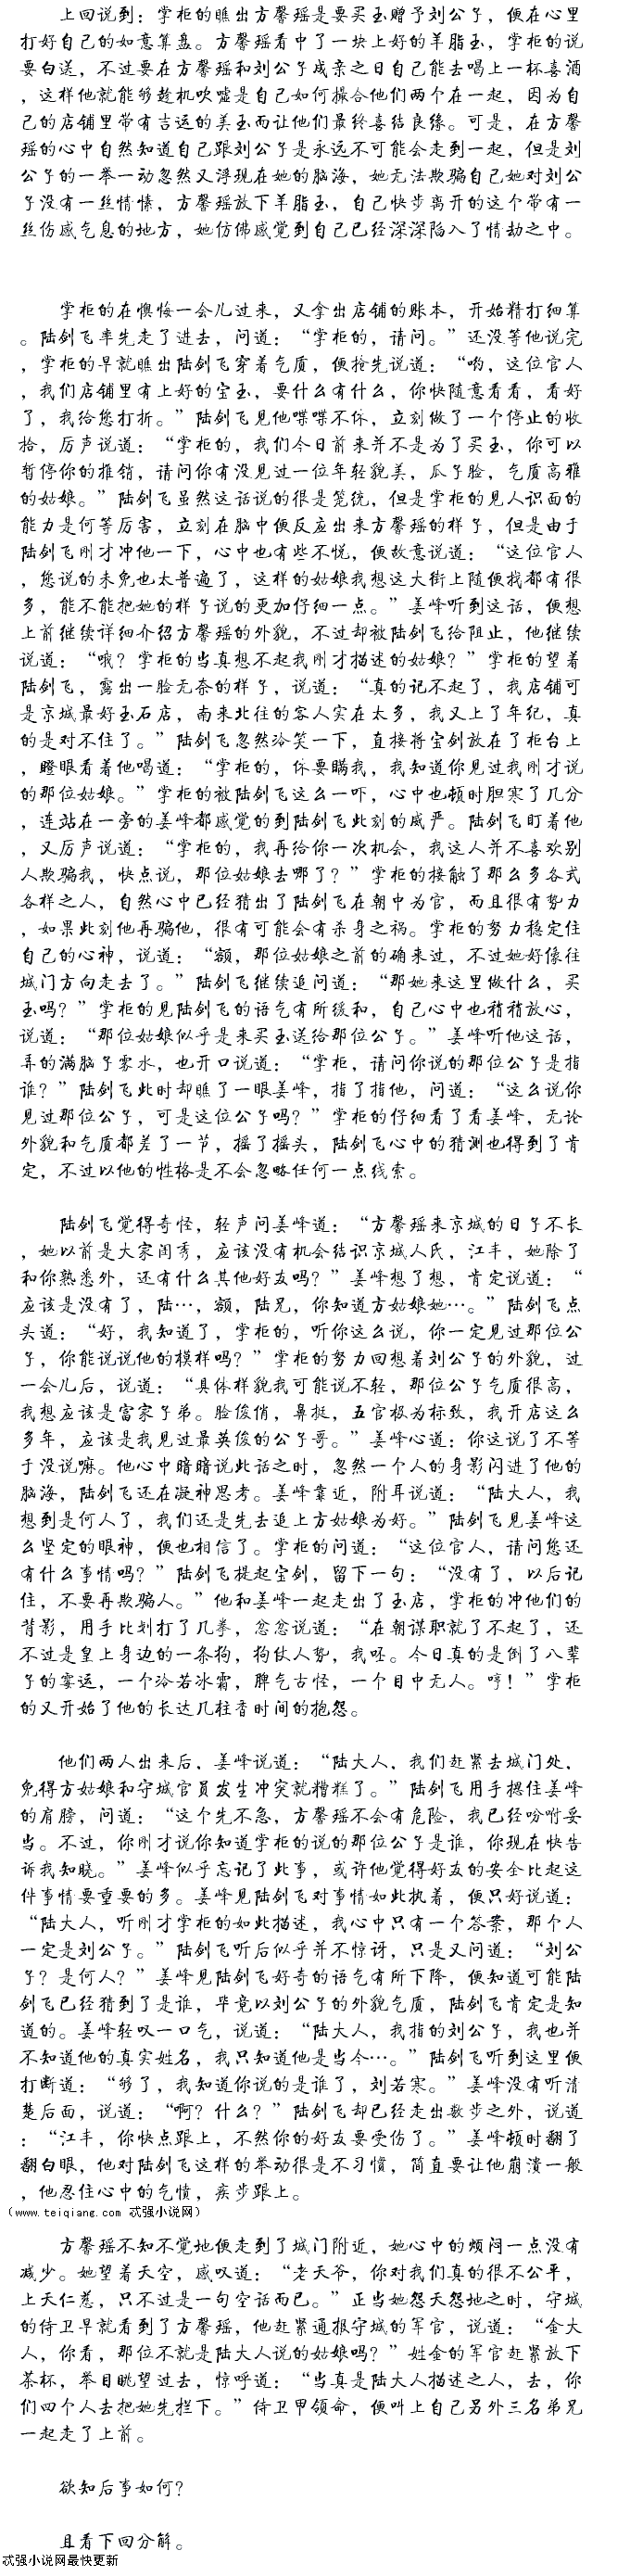 上回说到：掌柜的瞧出方馨瑶是要买玉赠予刘公子，便在心里
打好自己的如意算盘。方馨瑶看中了一块上好的羊脂玉，掌柜的说
要白送，不过要在方馨瑶和刘公子成亲之日自己能去喝上一杯喜酒
，这样他就能够趁机吹嘘是自己如何撮合他们两个在一起，因为自
己的店铺里带有吉运的美玉而让他们最终喜结良缘。可是，在方馨
瑶的心中自然知道自己跟刘公子是永远不可能会走到一起，但是刘
公子的一举一动忽然又浮现在她的脑海，她无法欺骗自己她对刘公
子没有一丝情愫，方馨瑶放下羊脂玉，自己快步离开的这个带有一
丝伤感气息的地方，她仿佛感觉到自己已经深深陷入了情劫之中。
掌柜的在懊悔一会儿过来，又拿出店铺的账本，开始精打细算
。陆剑飞率先走了进去，问道：“掌柜的，请问。”还没等他说完
，掌柜的早就瞧出陆剑飞穿着气质，便抢先说道：“哟，这位官人
，我们店铺里有上好的宝玉，要什么有什么，你快随意看看，看好
了，我给您打折。”陆剑飞见他喋喋不休，立刻做了一个停止的收
拾，厉声说道：“掌柜的，我们今日前来并不是为了买玉，你可以
暂停你的推销，请问你有没见过一位年轻貌美，瓜子脸，气质高雅
的姑娘。”陆剑飞虽然这话说的很是笼统，但是掌柜的见人识面的
能力是何等厉害，立刻在脑中便反应出来方馨瑶的样子，但是由于
陆剑飞刚才冲他一下，心中也有些不悦，便故意说道：“这位官人
，您说的未免也太普遍了，这样的姑娘我想这大街上随便找都有很
多，能不能把她的样子说的更加仔细一点。”姜峰听到这话，便想
上前继续详细介绍方馨瑶的外貌，不过却被陆剑飞给阻止，他继续
说道：“哦？掌柜的当真想不起我刚才描述的姑娘？”掌柜的望着
陆剑飞，露出一脸无奈的样子，说道：“真的记不起了，我店铺可
是京城最好玉石店，南来北往的客人实在太多，我又上了年纪，真
的是对不住了。”陆剑飞忽然冷笑一下，直接将宝剑放在了柜台上
，瞪眼看着他喝道：“掌柜的，休要瞒我，我知道你见过我刚才说
的那位姑娘。”掌柜的被陆剑飞这么一吓，心中也顿时胆寒了几分
，连站在一旁的姜峰都感觉的到陆剑飞此刻的威严。陆剑飞盯着他
，又厉声说道：“掌柜的，我再给你一次机会，我这人并不喜欢别
人欺骗我，快点说，那位姑娘去哪了？”掌柜的接触了那么多各式
各样之人，自然心中已经猜出了陆剑飞在朝中为官，而且很有势力
，如果此刻他再骗他，很有可能会有杀身之祸。掌柜的努力稳定住
自己的心神，说道：“额，那位姑娘之前的确来过，不过她好像往
城门方向走去了。”陆剑飞继续追问道：“那她来这里做什么，买
玉吗？”掌柜的见陆剑飞的语气有所缓和，自己心中也稍稍放心，
说道：“那位姑娘似乎是来买玉送给那位公子。”姜峰听他这话，
弄的满脑子雾水，也开口说道：“掌柜，请问你说的那位公子是指
谁？”陆剑飞此时却瞧了一眼姜峰，指了指他，问道：“这么说你
见过那位公子，可是这位公子吗？”掌柜的仔细看了看姜峰，无论
外貌和气质都差了一节，摇了摇头，陆剑飞心中的猜测也得到了肯
定，不过以他的性格是不会忽略任何一点线索。
陆剑飞觉得奇怪，轻声问姜峰道：“方馨瑶来京城的日子不长
，她以前是大家闺秀，应该没有机会结识京城人氏，江丰，她除了
和你熟悉外，还有什么其他好友吗？”姜峰想了想，肯定说道：“
应该是没有了，陆…，额，陆兄，你知道方姑娘她…。”陆剑飞点
头道：“好，我知道了，掌柜的，听你这么说，你一定见过那位公
子，你能说说他的模样吗？”掌柜的努力回想着刘公子的外貌，过
一会儿后，说道：“具体样貌我可能说不轻，那位公子气质很高，
我想应该是富家子弟。脸俊俏，鼻挺，五官极为标致，我开店这么
多年，应该是我见过最英俊的公子哥。”姜峰心道：你这说了不等
于没说嘛。他心中暗暗说此话之时，忽然一个人的身影闪进了他的
脑海，陆剑飞还在凝神思考。姜峰靠近，附耳说道：“陆大人，我
想到是何人了，我们还是先去追上方姑娘为好。”陆剑飞见姜峰这
么坚定的眼神，便也相信了。掌柜的问道：“这位官人，请问您还
有什么事情吗？”陆剑飞提起宝剑，留下一句：“没有了，以后记
住，不要再欺骗人。”他和姜峰一起走出了玉店，掌柜的冲他们的
背影，用手比划打了几拳，忿忿说道：“在朝谋职就了不起了，还
不过是皇上身边的一条狗，狗仗人势，我呸。今日真的是倒了八辈
子的霉运，一个冷若冰霜，脾气古怪，一个目中无人。哼！”掌柜
的又开始了他的长达几柱香时间的抱怨。
他们两人出来后，姜峰说道：“陆大人，我们赶紧去城门处，
免得方姑娘和守城官员发生冲突就糟糕了。”陆剑飞用手摁住姜峰
的肩膀，问道：“这个先不急，方馨瑶不会有危险，我已经吩咐妥
当。不过，你刚才说你知道掌柜的说的那位公子是谁，你现在快告
诉我知晓。”姜峰似乎忘记了此事，或许他觉得好友的安全比起这
件事情要重要的多。姜峰见陆剑飞对事情如此执着，便只好说道：
“陆大人，听刚才掌柜的如此描述，我心中只有一个答案，那个人
一定是刘公子。”陆剑飞听后似乎并不惊讶，只是又问道：“刘公
子？是何人？”姜峰见陆剑飞好奇的语气有所下降，便知道可能陆
剑飞已经猜到了是谁，毕竟以刘公子的外貌气质，陆剑飞肯定是知
道的。姜峰轻叹一口气，说道：“陆大人，我指的刘公子，我也并
不知道他的真实姓名，我只知道他是当今…。”陆剑飞听到这里便
打断道：“够了，我知道你说的是谁了，刘若寒。”姜峰没有听清
楚后面，说道：“啊？什么？”陆剑飞却已经走出数步之外，说道
：“江丰，你快点跟上，不然你的好友要受伤了。”姜峰顿时翻了
翻白眼，他对陆剑飞这样的举动很是不习惯，简直要让他崩溃一般
，他忍住心中的气愤，疾步跟上。
（www.teiqiang.com 忒强小说网）
方馨瑶不知不觉地便走到了城门附近，她心中的烦闷一点没有
减少。她望着天空，感叹道：“老天爷，你对我们真的很不公平，
上天仁慈，只不过是一句空话而已。”正当她怨天怨地之时，守城
的侍卫早就看到了方馨瑶，他赶紧通报守城的军官，说道：“金大
人，你看，那位不就是陆大人说的姑娘吗？”姓金的军官赶紧放下
茶杯，举目眺望过去，惊呼道：“当真是陆大人描述之人，去，你
们四个人去把她先拦下。”侍卫甲领命，便叫上自己另外三名弟兄
一起走了上前。
欲知后事如何？
且看下回分解。
忒强小说网最快更新